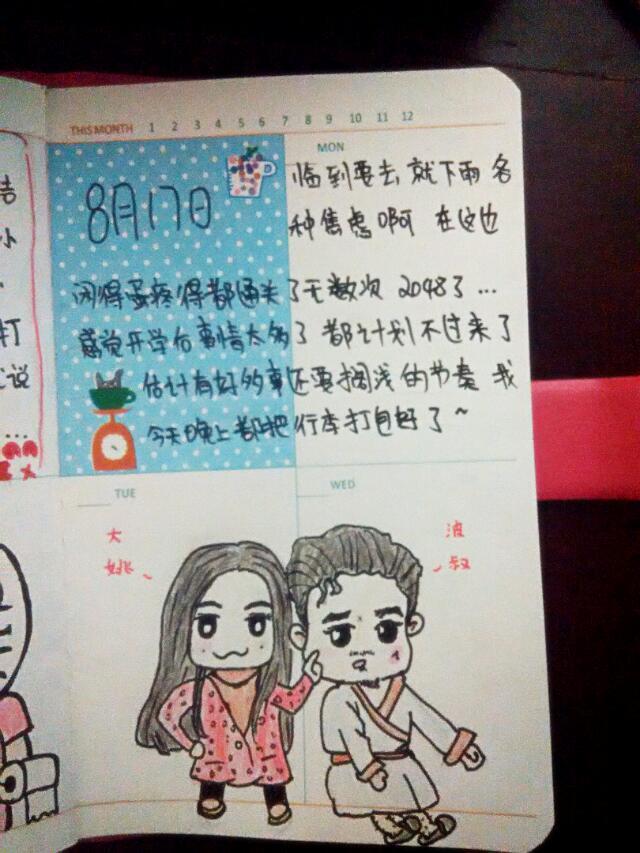 THIS MONTH 1 2 3 4 5 6 7 8 9 10 11 12
MON
8月17日
临到要去 就下雨 各
种焦虑啊 在这边
闲得蛋疼得都通关了无数次 2048了...
感觉开学后事情太多了 都计划不过来了
估计有好多事还要搁浅的节奏 我
今天晚上都把行李打包好了~
TUE
WED
大
姚
波
叔
洁
小
打
说
...